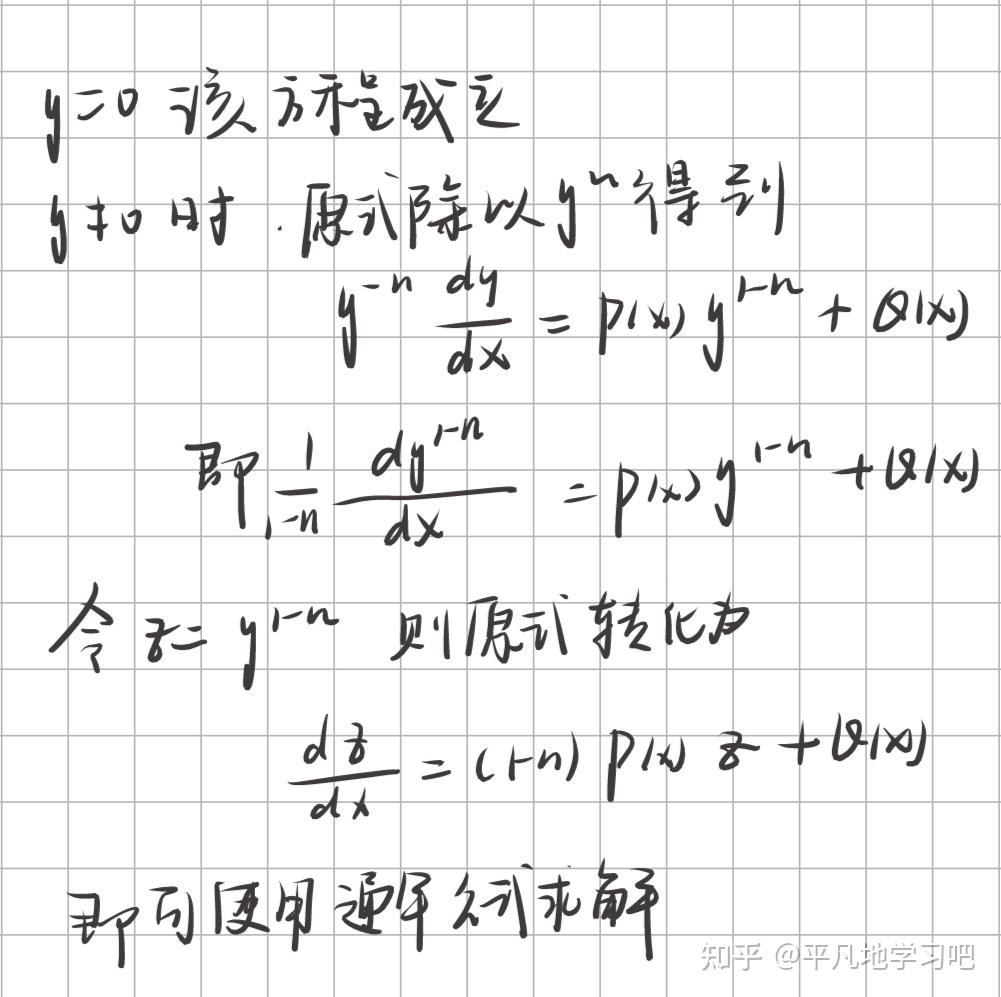 y=0 该方程成立
y≠0 时.原式除以 yⁿ 得到
y⁻ⁿ dy/dx = P(x) y¹⁻ⁿ + Q(x)
即 1/(1-n) dy¹⁻ⁿ/dx = P(x) y¹⁻ⁿ + Q(x)
令 z= y¹⁻ⁿ 则原式转化为
dz/dx = (1-n) P(x) z + Q(x)
即可使用通解公式求解
知乎 @平凡地学习吧